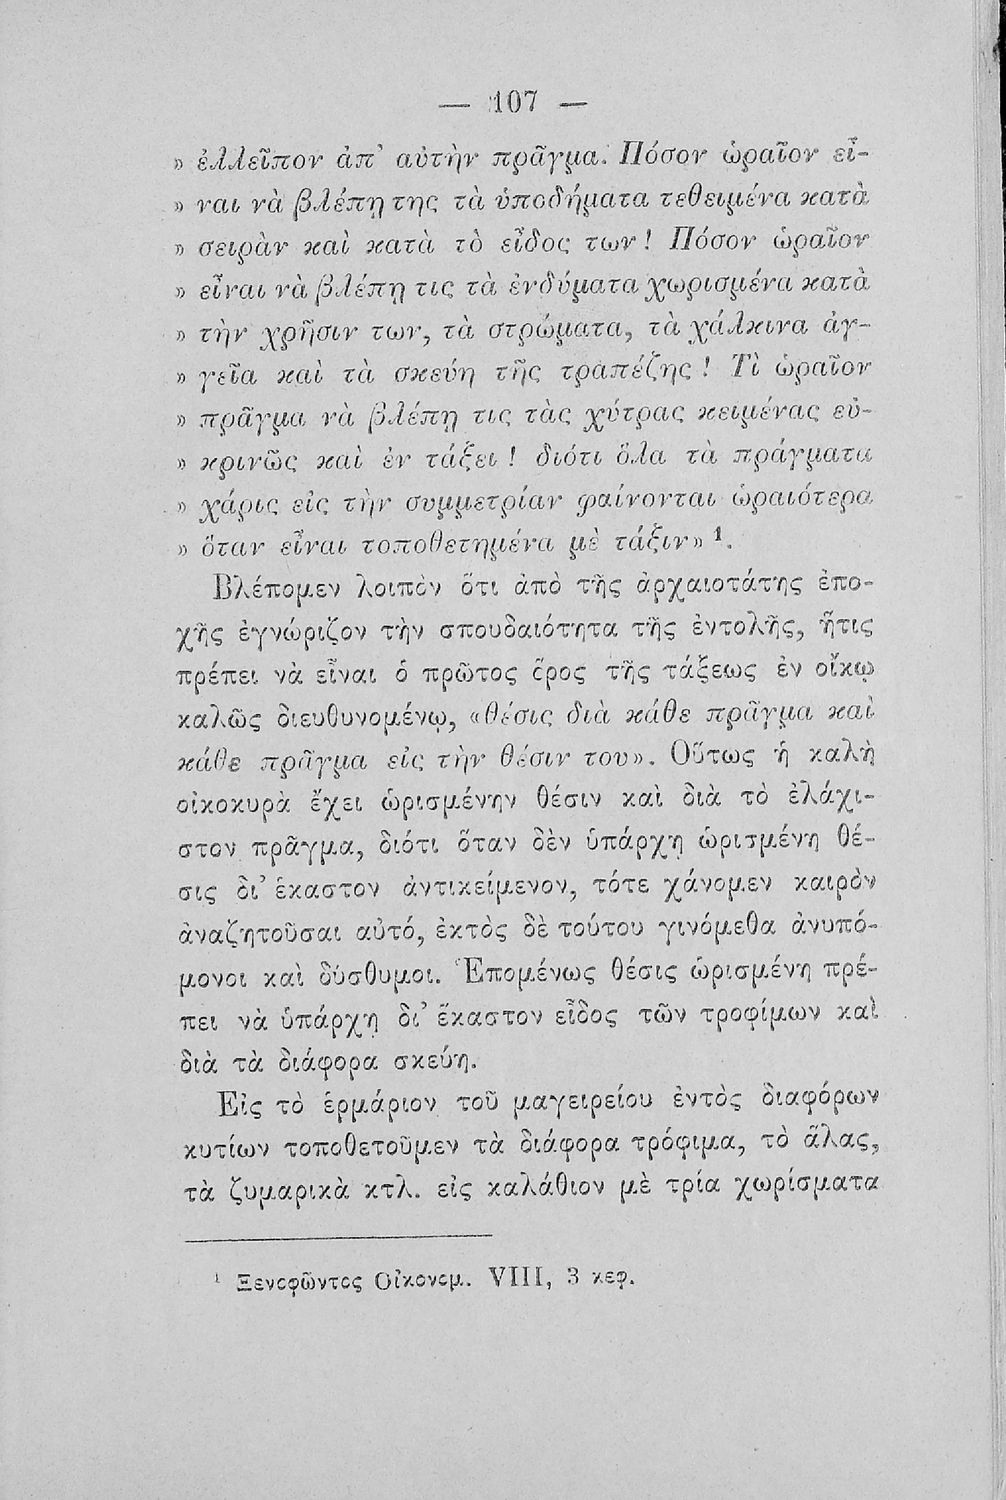 — 107 —
» ἐλλεῖπον ἀπ’ αὐτὴν πρᾶγμα. Πόσον ὡραῖον εἶ-
» ναι νὰ βλέπῃ της τὰ ὑποδήματα τεθειμένα κατὰ
» σειρὰν καὶ κατὰ τὸ εἶδος των! Πόσον ὡραῖον
» εἶναι νὰ βλέπῃ τις τὰ ἐνδύματα χωρισμένα κατὰ
» τὴν χρῆσιν των, τὰ στρώματα, τὰ χάλκινα ἀγ-
» γεῖα καὶ τὰ σκεύη τῆς τραπέζης! Τὶ ὡραῖον
» πρᾶγμα νὰ βλέπῃ τις τὰς χύτρας κειμένας εὐ-
» κρινῶς καὶ ἐν τάξει! διότι ὅλα τὰ πράγματα
» χάρις εἰς τὴν συμμετρίαν φαίνονται ὡραιότερα
» ὅταν εἶναι τοποθετημένα μὲ τάξιν» ¹.
Βλέπομεν λοιπὸν ὅτι ἀπὸ τῆς ἀρχαιοτάτης ἐπο-
χῆς ἐγνώριζον τὴν σπουδαιότητα τῆς ἐντολῆς, ἥτις
πρέπει νὰ εἶναι ὁ πρῶτος ὅρος τῆς τάξεως ἐν οἴκῳ
καλῶς διευθυνομένῳ, «θέσις διὰ κάθε πρᾶγμα καὶ
κάθε πρᾶγμα εἰς τὴν θέσιν του». Οὕτως ἡ καλὴ
οἰκοκυρὰ ἔχει ὡρισμένην θέσιν καὶ διὰ τὸ ἐλάχι-
στον πρᾶγμα, διότι ὅταν δὲν ὑπάρχῃ ὡρισμένη θέ-
σις δι’ ἕκαστον ἀντικείμενον, τότε χάνομεν καιρὸν
ἀναζητοῦσαι αὐτό, ἐκτὸς δὲ τούτου γινόμεθα ἀνυπό-
μονοι καὶ δύσθυμοι. Ἑπομένως θέσις ὡρισμένη πρέ-
πει νὰ ὑπάρχῃ δι’ ἕκαστον εἶδος τῶν τροφίμων καὶ
διὰ τὰ διάφορα σκεύη.
Εἰς τὸ ἑρμάριον τοῦ μαγειρείου ἐντὸς διαφόρων
κυτίων τοποθετοῦμεν τὰ διάφορα τρόφιμα, τὸ ἅλας,
τὰ ζυμαρικὰ κτλ. εἰς καλάθιον μὲ τρία χωρίσματα
¹ Ξενοφῶντος Οἰκονομ. VIII, 3 κεφ.